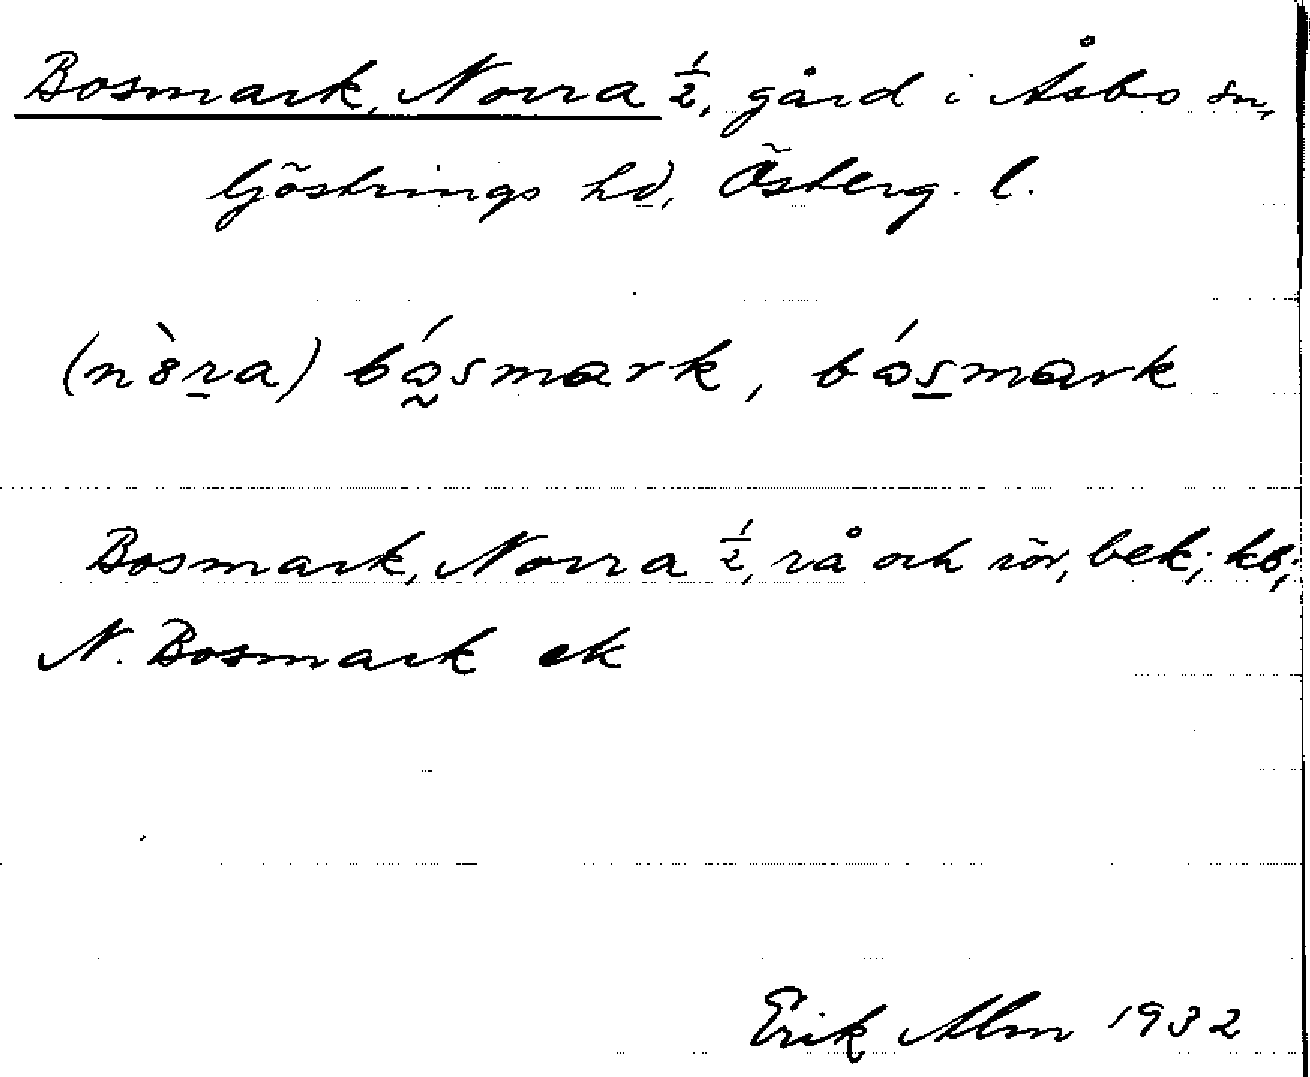 Bosmark, Norra 1/2, gård i Åsbo sn,
Göstrings hd, Österg. l.
(nòra) bósmark, bósmark
Bosmark, Norra 1/2, rå och rör, bek; kB;
N. Bosmark ek
Erik Alm 1932